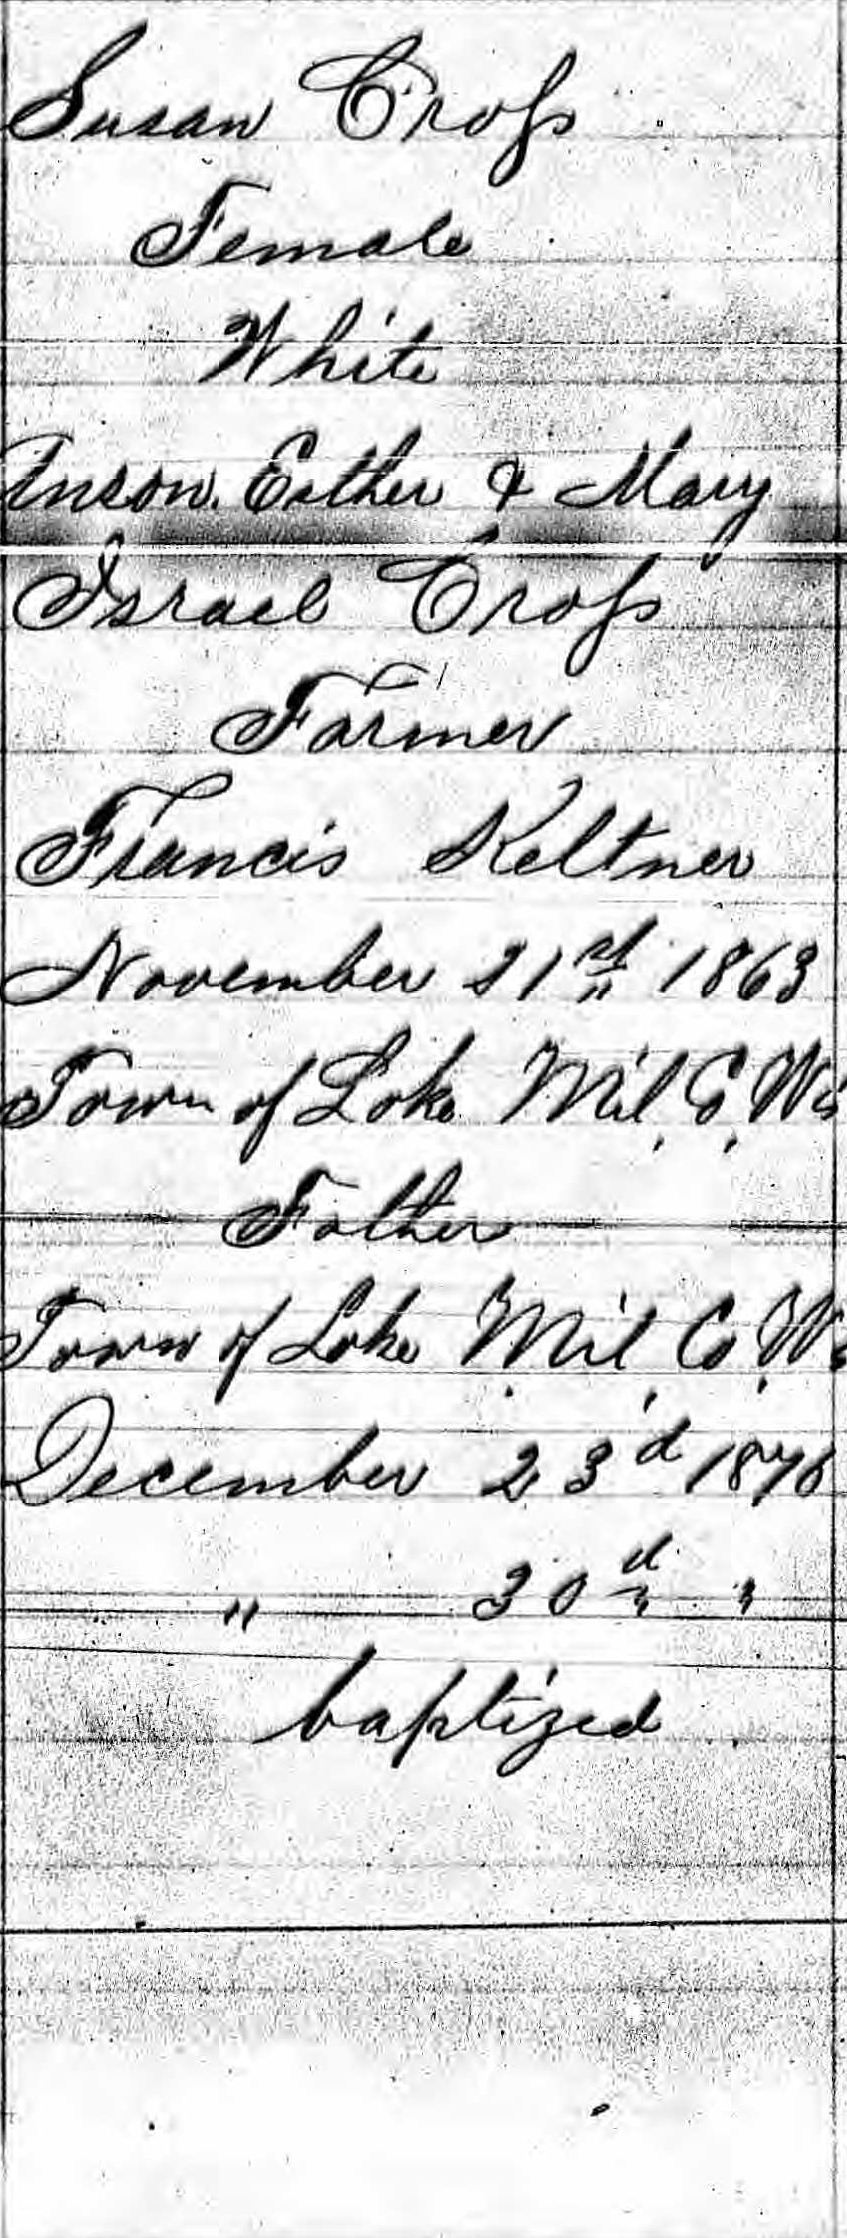 Susan Croſs
Female
White
Anson. Esther & Mary
Israel Croſs
Farmer
Francis Keltner
November 21st 1863
Town of Lake Mil, Co, Wis
Father
Town of Lake Mil, Co, Wis
December 23d 1878
" 30d "
baptized